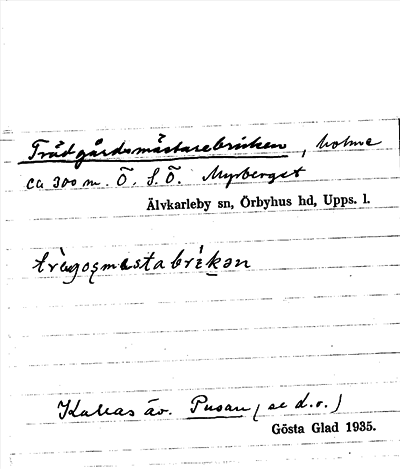 Trädgårdsmästarebrinken, holme
ca 300 m. Ö. S.Ö. Myrberget
Älvkarleby sn, Örbyhus hd, Upps. l.
Kallas äv. Pusan (se d.o.)
Gösta Glad 1935.